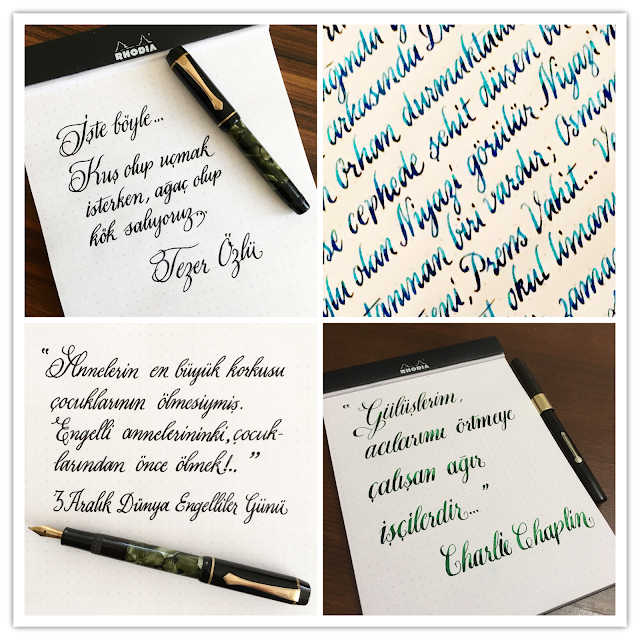 RHODIA
İşte böyle...
Kuş olup uçmak
isterken, ağaç olup
kök salıyoruz,
Tezer Özlü
arkasında
Orhan durmaktadı
se cephede şehit düşen bi
olan Niyazi görülür. Niyazi'n
tanınan biri vardır; Osman
Prens Vahit... Ve
okul liman
zama
"Annelerin en büyük korkusu
çocuklarının ölmesiymiş.
Engelli annelerininki, çocuk-
larından önce ölmek!.. "
3 Aralık Dünya Engelliler Günü
RHODIA
"Gülüşlerim,
acılarımı örtmeye
çalışan ağır
işçilerdir..."
Charlie Chaplin